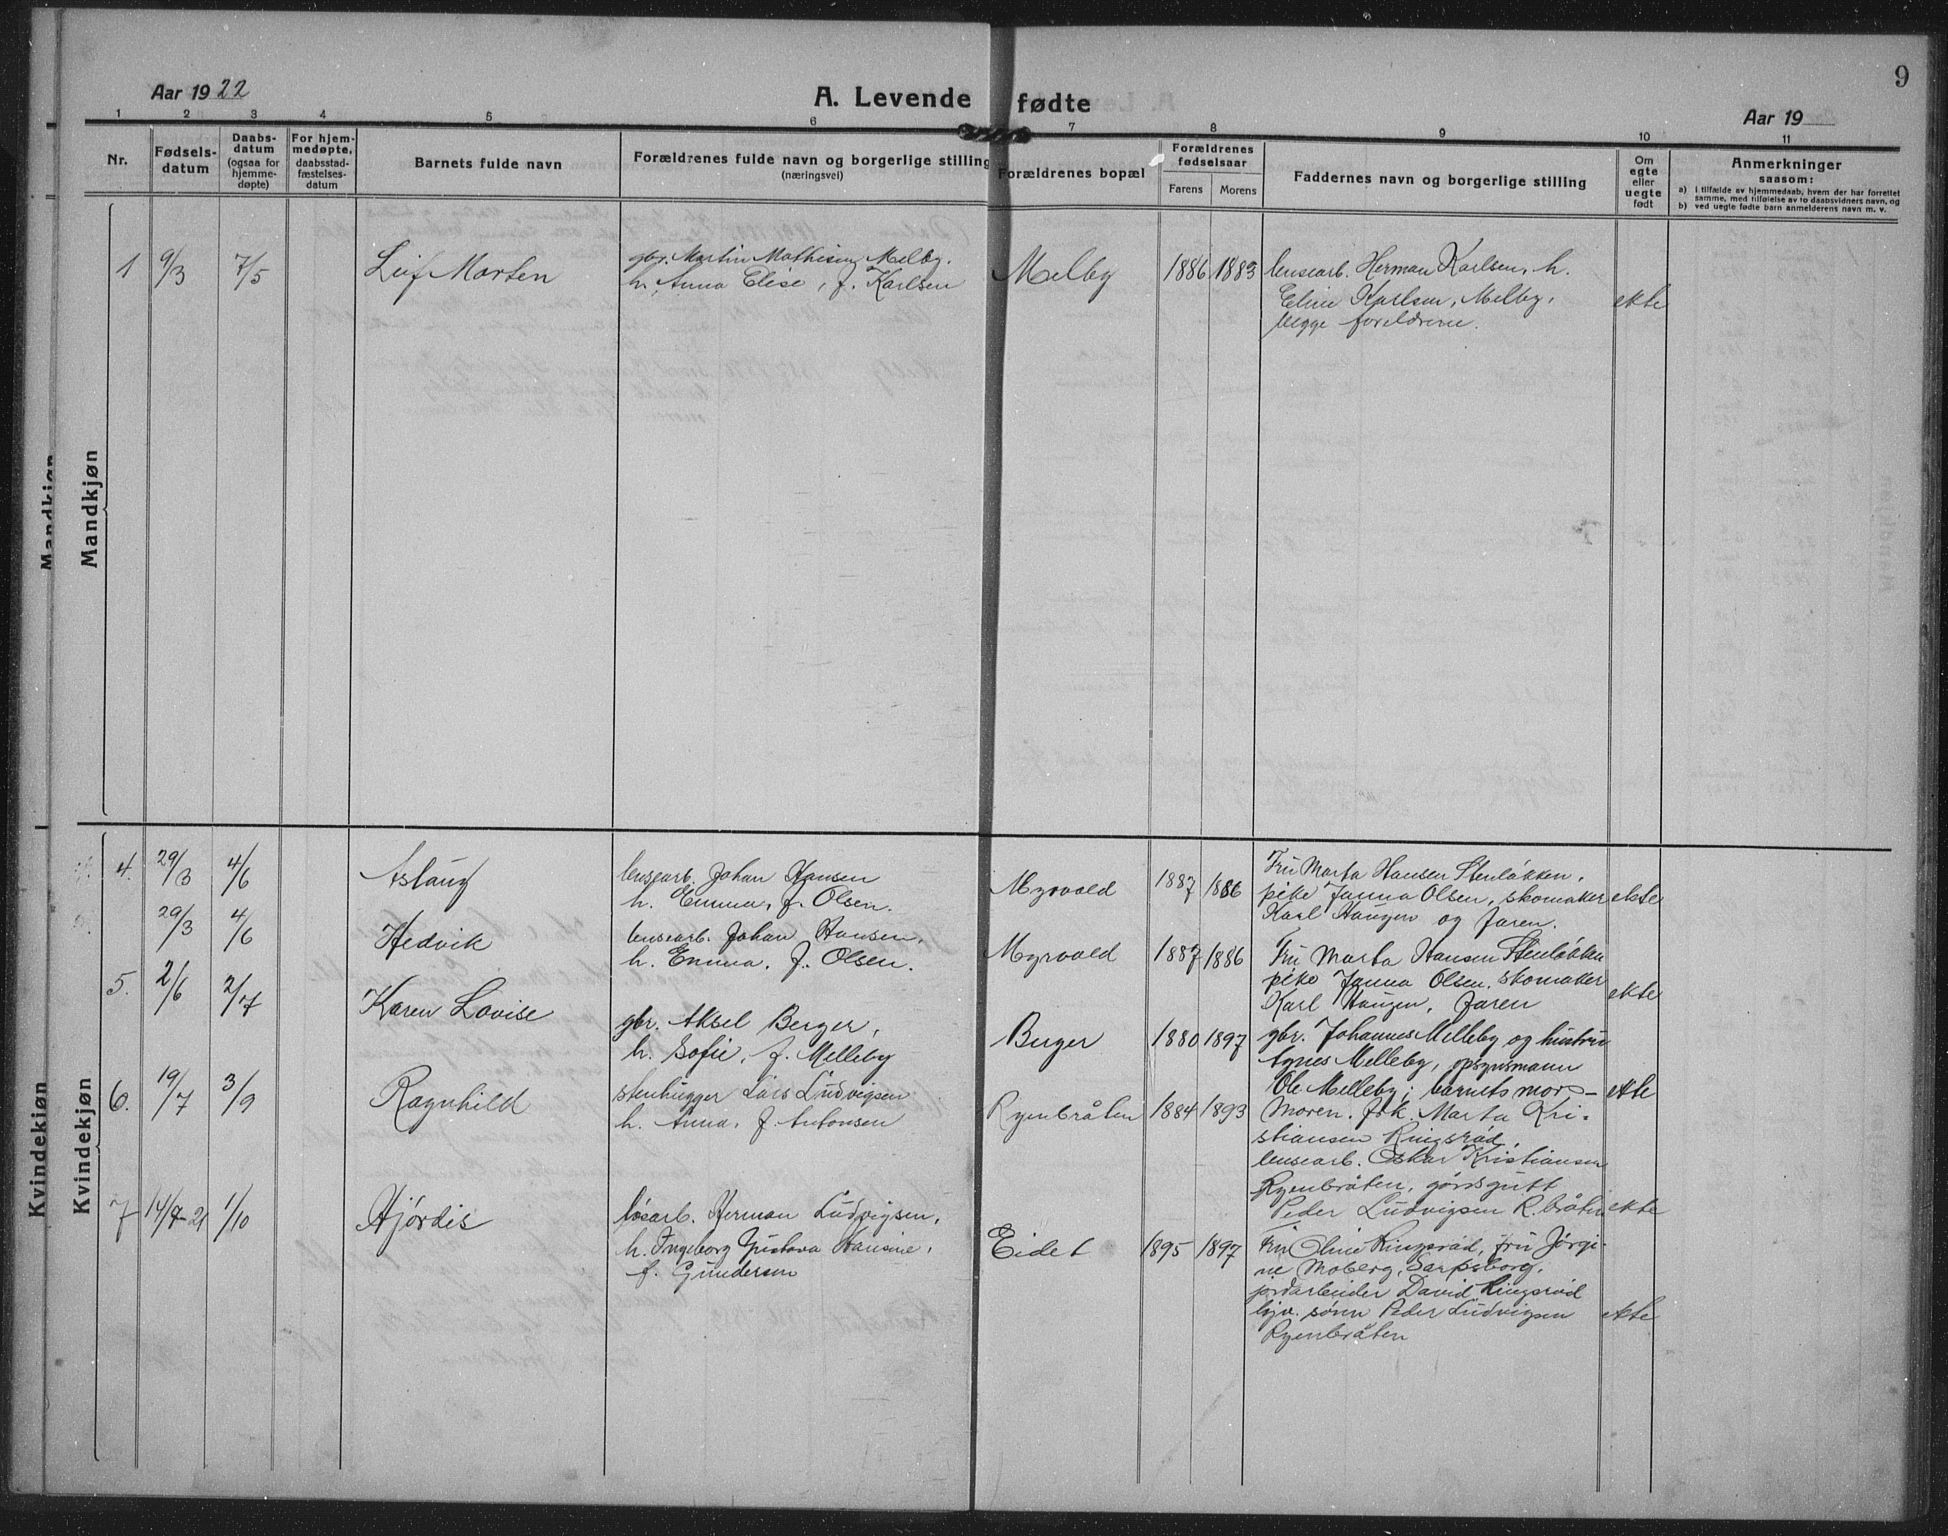 Aar 1922
A. Levende fødte
Aar 19
9
1 2 3 4 5 6 7 8 9 10 11
Nr.
Fødsels-
datum
Daabs-
datum
(ogsaa for
hjemme-
døpte)
For hjem-
medøpte,
daabsstad-
fæstelses-
datum
Barnets fulde navn
Forældrenes fulde navn og borgerlige stilling
(næringsvei)
Forældrenes bopæl
Forældrenes
fødselsaar
Farens Morens
Faddernes navn og borgerlige stilling
Om
egte
eller
uegte
født
Anmerkninger
saasom:
a) I tilfælde av hjemmedaab, hvem der har forrettet
samme, med tilføielse av to daabsvidners navn, og
b) ved uegte fødte barn anmelderens navn m. v.
Mandkjøn
Mandkjøn
1 9/3 7/5 Leif Morten
gbr. Martin Mathisen, Melby.
h. Anna Elise, f. Karlsen
Melby 1886 1883
lensearb. Herman Karlsen, h.
Eline Karlsen, Melby,
begge foreldrene.
ekte
Kvindekjøn
Kvindekjøn
4. 29/3 4/6 Aslaug
lensearb. Johan Hansen
h. Emma, f. Olsen.
Myrvold 1887 1886
Fru Marta Hansen Stenløkken,
pike Janna Olsen, skomaker
Karl Haugen og Jaren.
ekte
29/3 4/6 Hedvik
lensearb. Johan Hansen,
h. Emma, f. Olsen.
Myrvold 1887 1886
Fru Marta Hansen Stenløkken
pike Janna Olsen, skomaker
Karl Haugen, Jaren
ekte
5. 2/6 2/7 Karen Lovise
gbr. Aksel Berger,
h. Sofie, f. Melleby
Berger 1880 1897
gbr. Johannes Melleby og hustru
Agnes Melleby, opsynsmann
Ole Melleby; barnets mor –
ekte
6. 19/7 3/9 Ragnhild
stenhugger Lars Ludvigsen
h. Anna, f. Antonsen
Ryenbråten 1884 1893
Moren. frk. Marta Kri-
stiansen Ringsrød,
lensearb. Oskar Kristiansen
Ryenbråten, gårdsgutt
Peder Ludvigsen R.bråten
ekte
7 14/9-21 1/10 Hjørdis
løsarb. Herman Ludvigsen,
h. Ingeborg Gustava Hansine,
f. Gundersen
Eidet 1895 1897
Fru Oline Ringsrød, fru Jørgi-
ne Moberg, Sarpsborg,
jordarbeider David Ringsrød
gv. sønn Peder Ludvigsen
Ryenbråten
ekte